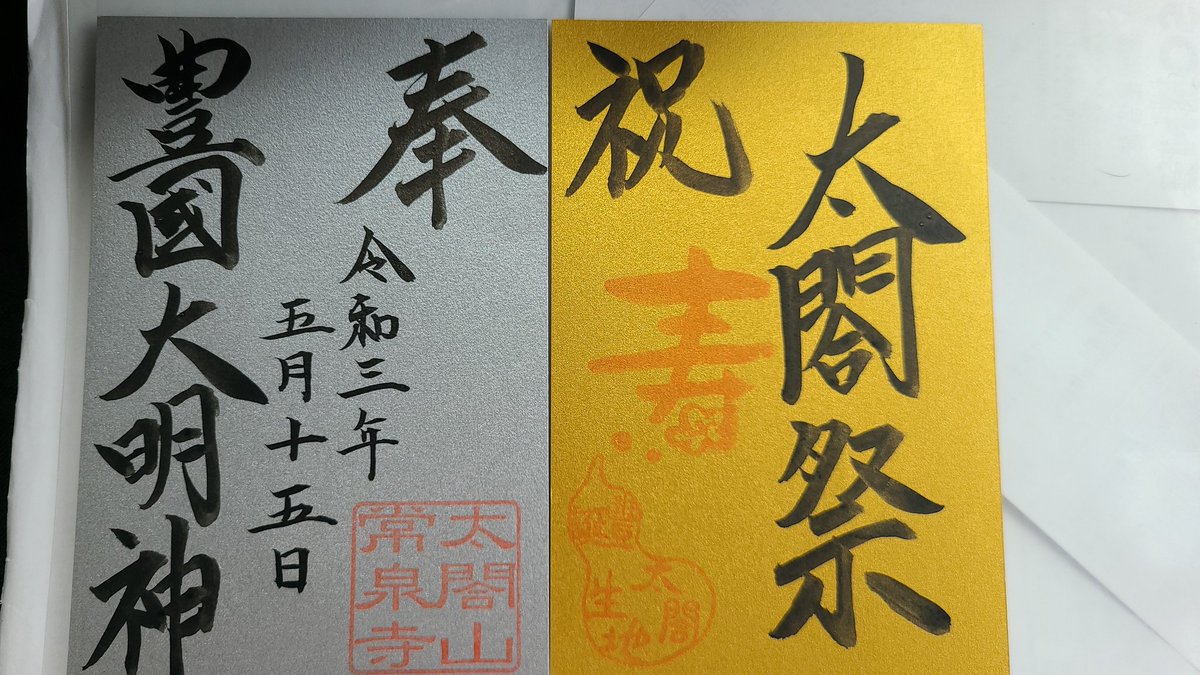 太閤祭
祝
寿
豊
誕
太閤
生地
奉
令和三年
五月十五日
豐國大明神
太閤山
常泉寺